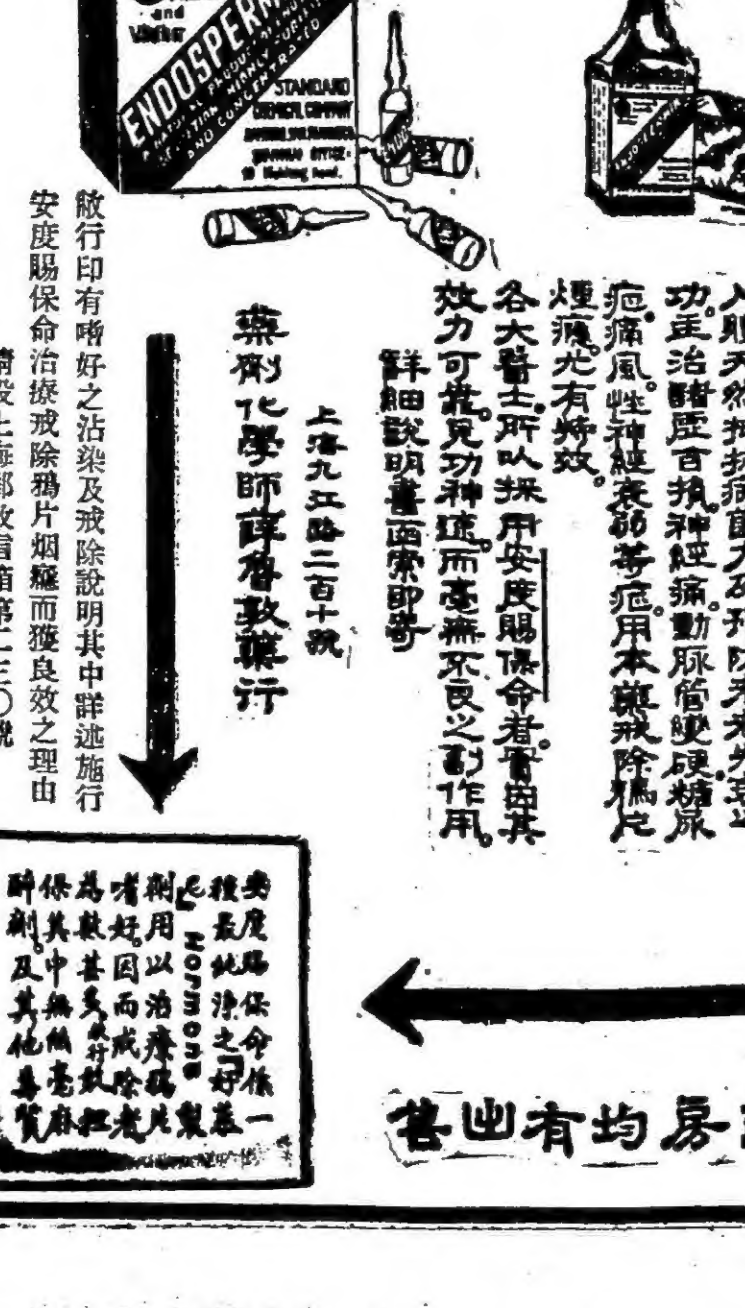 and
ENDOSPERM
A NATURAL PRODUCT
HIGHLY PURIFIED
AND CONCENTRATED
STANDARD
CHEMICAL COMPANY
功。主治諸虛百損。神經痛。動脈管變硬。糖尿
症。痛風。性神經衰弱等症。用本藥戒除鴉片
煙癮。尤有特效。
各大醫士。所以採用安度賜保命者。實因其
效力可靠。見功神速。而毫無不良之副作用。
詳細說明書函索即寄
上海九江路二百十號
藥劑化學師
藥行
敝行印有嗜好之沾染及戒除說明其中詳述施行
安度賜保命治療戒除鴉片烟癮而獲良效之理由
上海郵政信箱第二三〇號
安度賜保命係一
種最純淨之「好蒙
HORMONE 製
劑用以治療鴉片
嗜好。因而戒除者
為數甚多。敝行敢担
保其中無絲毫麻
醉劑。及其他毒質
房均有出售